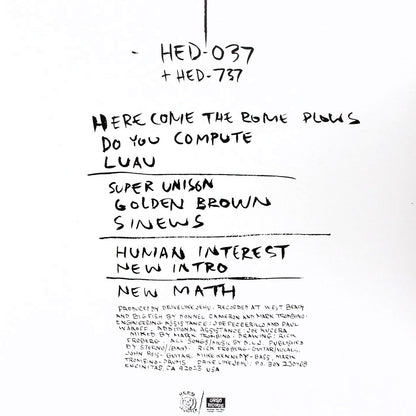 HED-037
+ HED-737
HERE COME THE ROME PLOWS
DO YOU COMPUTE
LUAU
SUPER UNISON
GOLDEN BROWN
SINEWS
HUMAN INTEREST
NEW INTRO
NEW MATH
PRODUCED BY DRIVE LIKE JEHU. RECORDED AT WEST BEACH
AND BIG FISH BY DONNEL CAMERON AND MARK TROMBINO.
ENGINEERING ASSISTANCE: JOE PECCERILLO AND PAUL
ADDITIONAL ASSISTANCE: JOE KUCERA
MIXED BY MARK TROMBINO. DRAWING: RICK
FROBERG. ALL SONGS/MUSIC BY D.L.J. PUBLISHED
BY STERNO/(BMI). RICK FROBERG-GUITAR/VOCALS,
JOHN REIS-GUITAR, MIKE KENNEDY-BASS, MARK
TROMBINO-DRUMS DRIVE LIKE JEHU. PO. BOX 230408
ENCINITAS, CA 92023 USA